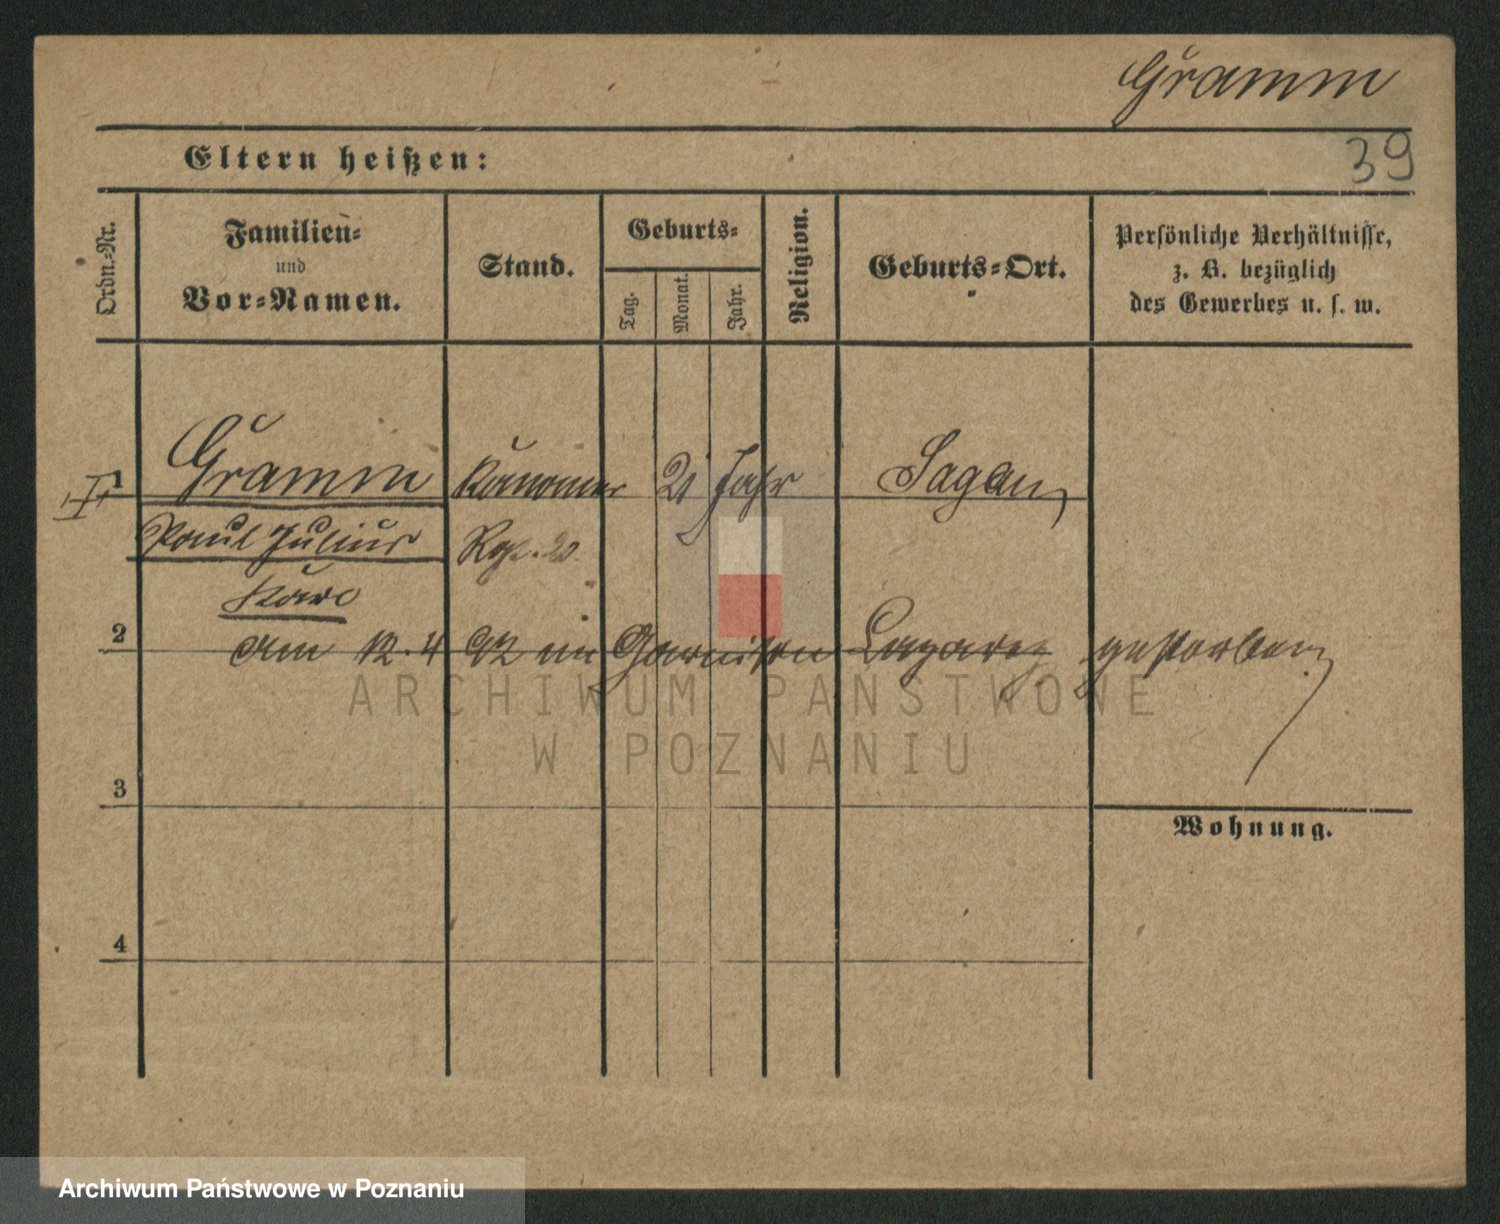 Gramm
39
Eltern heißen:
Ordn.-Nr.
Familien-
und
Vor-Namen.
Stand.
Geburts-
Tag.
Monat.
Jahr.
Religion.
Geburts-Ort.
Persönliche Verhältnisse,
z. B. bezüglich
des Gewerbes u. s. w.
1 Gramm Kanonier 21 Jahr Sagan
Paul Julius Rgt. 20
Karl
2
am 12.4 92 im Garnison Lazareth gestorben
ARCHIWUM PAŃSTWOWE
W POZNANIU
3
Wohnung.
4
Archiwum Państwowe w Poznaniu